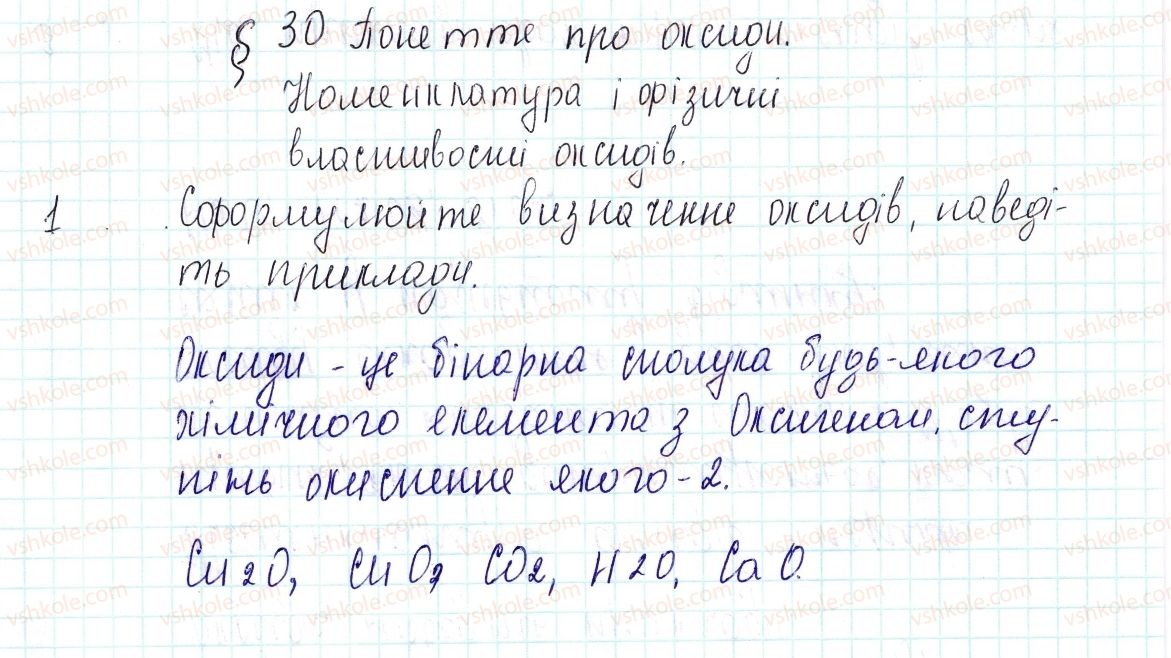 § 30 Поняття про оксиди.
Номенклатура і фізичні
властивості оксидів.
1 Сформулюйте визначення оксидів, наведі-
ть приклади.
Оксиди - це бінарна сполука будь-якого
хімічного елемента з Оксигеном, сту-
пінь окиснення якого -2.
Cu2O, CuO, CO2, H2O, CaO.